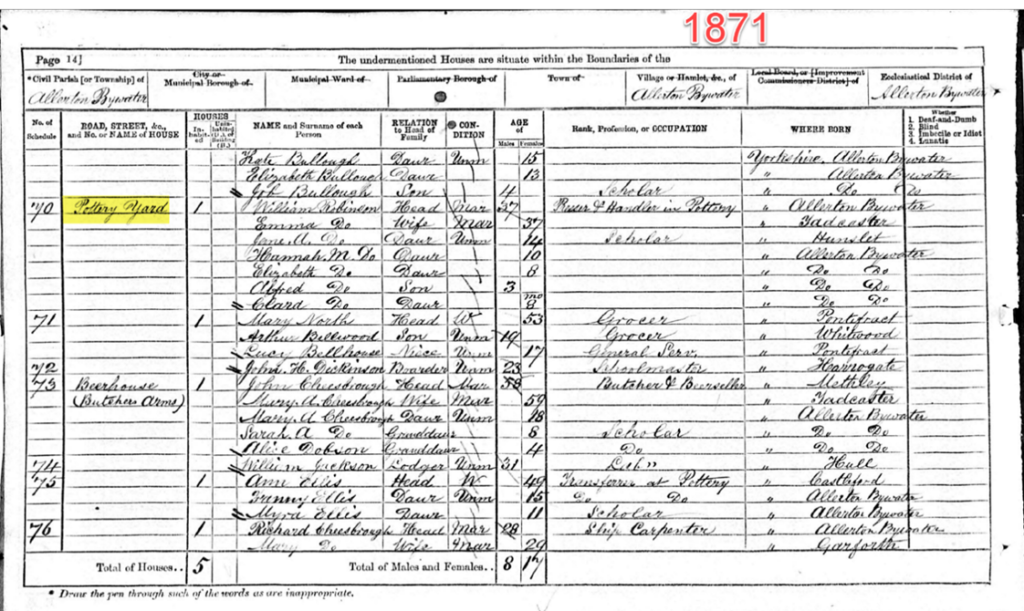 1871
Page 14]
The undermentioned Houses are situate within the Boundaries of the
*Civil Parish [or Township] of
City or Municipal Borough of
Municipal Ward of
Parliamentary Borough of
Town of
Village or Hamlet, &c., of
Local Board, or [Improvement Commissioners District] of
Ecclesiastical District of
Allerton Bywater Allerton Bywater Allerton Bywater
No. of Schedule
ROAD, STREET, &c., and No. or NAME of HOUSE
HOUSES
Inhabited
NAME and Surname of each Person
RELATION to Head of Family
CONDITION
AGE
Males Females
Rank, Profession, or OCCUPATION
WHERE BORN
Whether
1. Deaf-and-Dumb
2. Blind
3. Imbecile or Idiot
4. Lunatic
Kate Bullough Daur Unm 15 Yorkshire, Allerton Bywater
Elizabeth Bullough Daur 13 " Allerton Bywater
Job Bullough Son 4 Scholar " Do Do
70 Pottery Yard 1 William Robinson Head Mar 37 Presser & Handler in Pottery " Allerton Bywater
Emma Do Wife Mar 37 " Tadcaster
Jane A. Do Daur Unm 14 Scholar " Hunslet
Hannah M. Do Daur 10 " Allerton Bywater
Elizabeth Do Daur 8 " Do Do
Alfred Do Son 3 " Do Do
Clara Do Daur 8 mo " Do Do
71 1 Mary North Head W 53 Grocer " Pontefract
Arthur Bellwood Son Unm 19 Grocer " Whitwood
Lucy Bellhouse Niece Unm 17 General Serv. " Pontefract
72 John H. Dickinson Boarder Unm 23 Schoolmaster " Harrogate
73 Beerhouse 1 John Cheesbrough Head Mar 58 Butcher & Beerseller " Methley
(Butchers Arms) Mary A Cheesbrough Wife Mar 59 " Tadcaster
Mary A Cheesbrough Daur Unm 18 " Allerton Bywater
Sarah A Do Granddaur 8 Scholar " Do Do
Alice Dobson Granddaur 4 Do " Do Do
74 William Jackson Lodger Unm 31 " Hull
75 1 Ann Ellis Head W 49 Transferrer at Pottery " Castleford
Fanny Ellis Daur Unm 15 Do Do " Allerton Bywater
Myra Ellis Daur 11 Scholar " Allerton Bywater
76 1 Richard Cheesbrough Head Mar 28 Ship Carpenter " Allerton Bywater
Mary Do Wife Mar 29 " Garforth
Total of Houses.. 5 Total of Males and Females.. 8 17
* Draw the pen through such of the words as are inappropriate.